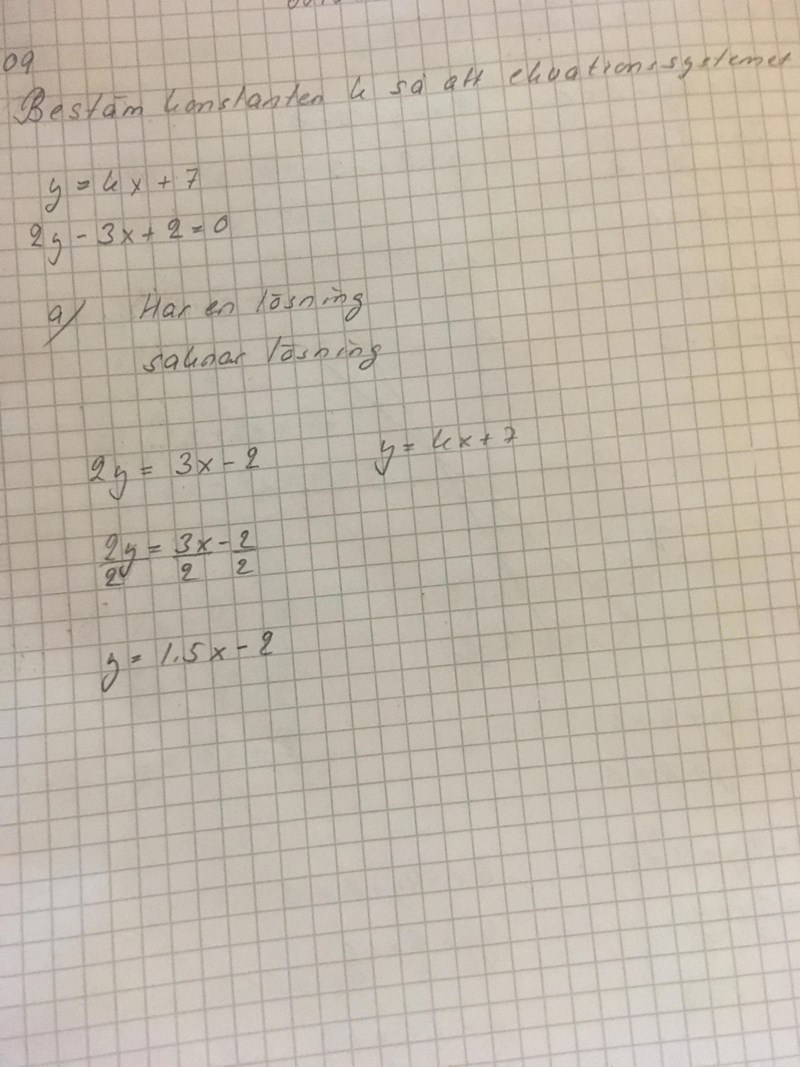 09
Bestäm konstanten k så att ekvationssystemet
y = kx + 7
2y - 3x + 2 = 0
a) Har en lösning
saknar lösning
2y = 3x - 2 y = kx + 7
2y/2 = 3x/2 - 2/2
y = 1.5x - 2